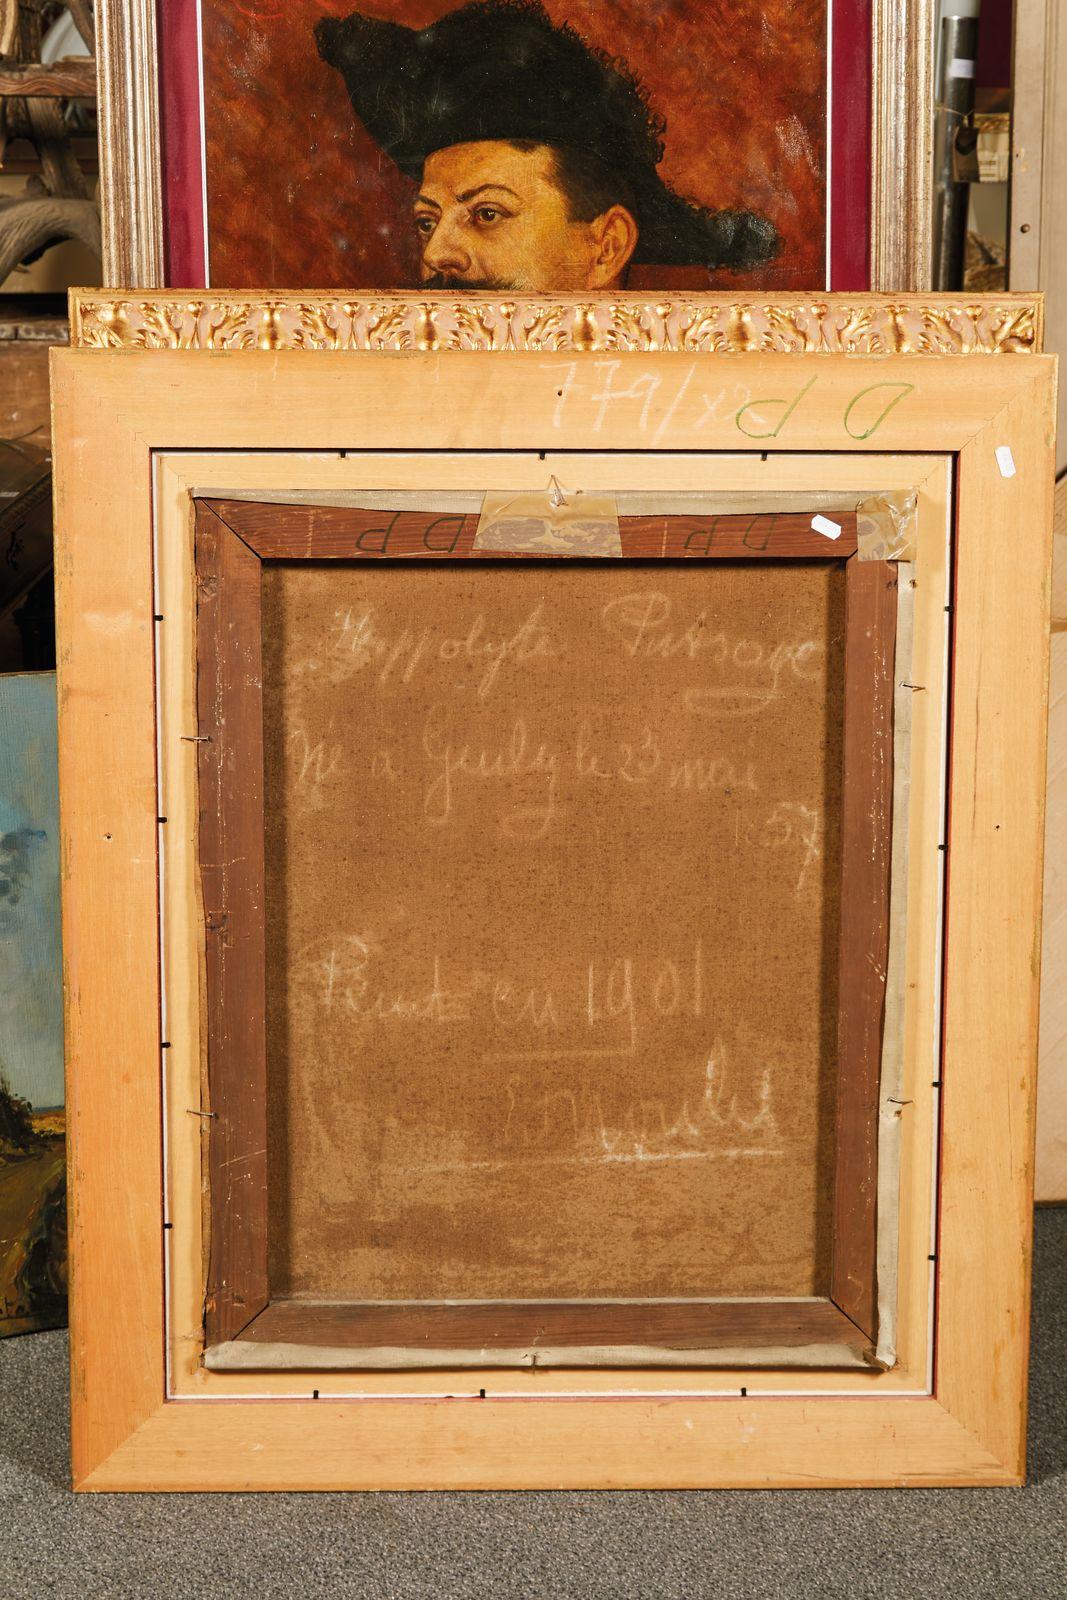 779/x2 P D
D P D P D
Hyppolyte Putsage
Né à Genly le 23 mai
57
Peint en 1901